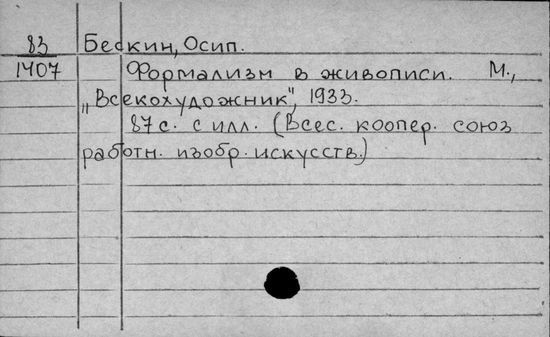 83 Бескин, Осип.
1407 Формализм в живописи. М.,
„Всекохудожник", 1933.
87 с. с илл. (Всес. коопер. союз
работн. изобр. искусств.)